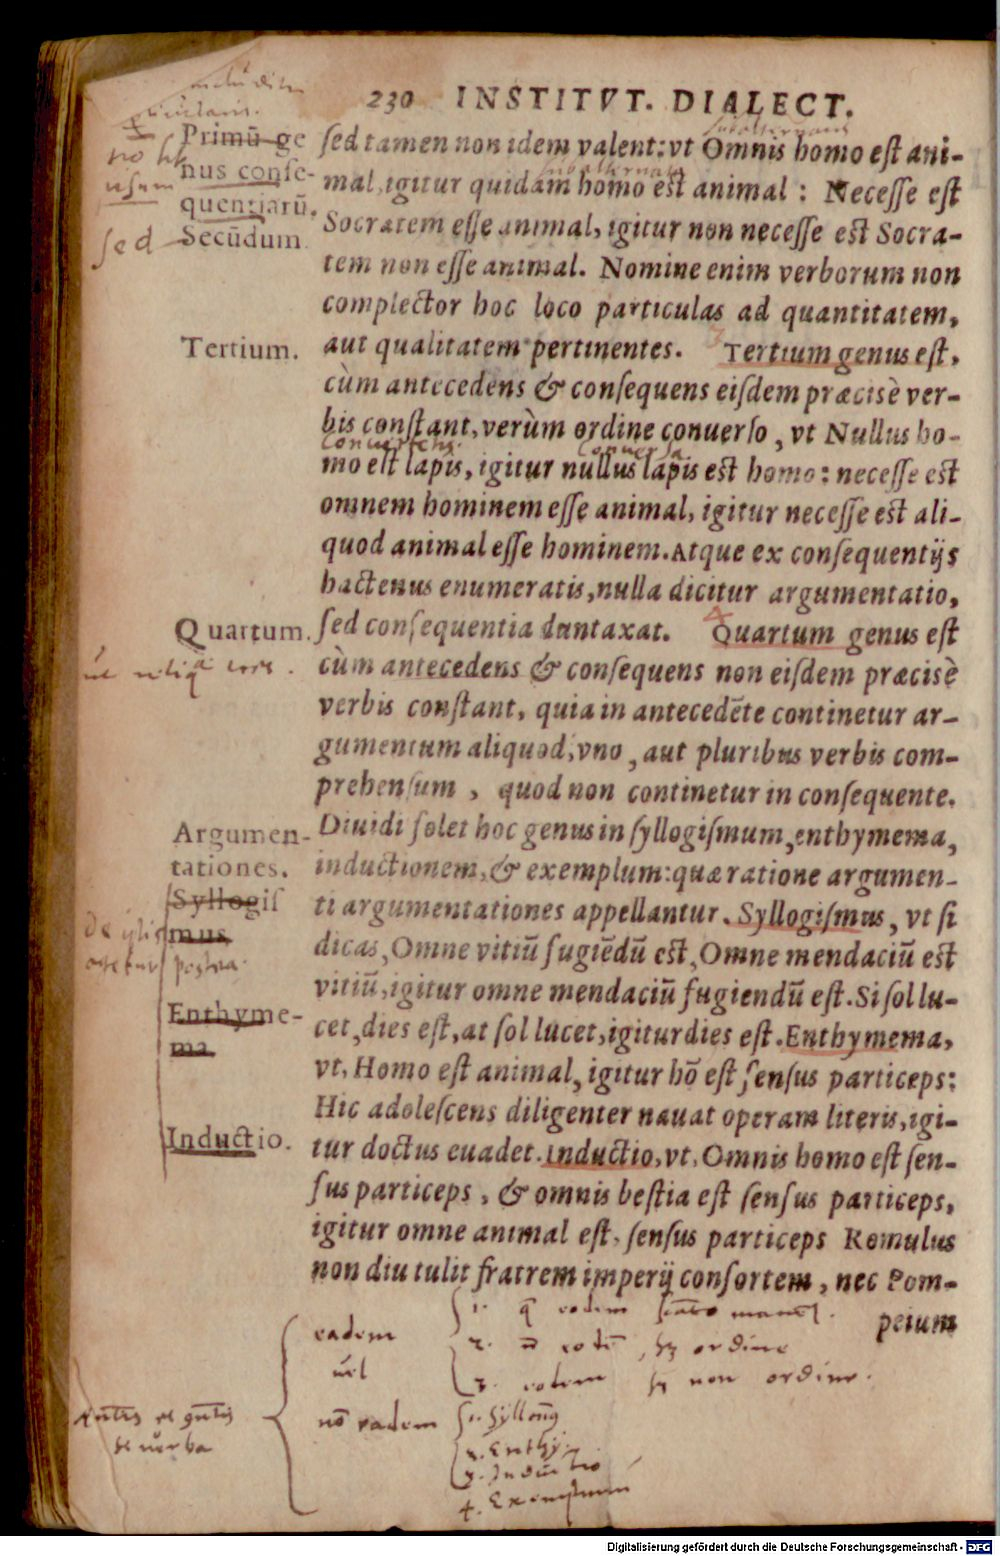 230 INSTITVT. DIALECT.
Primū ge
nus conſe-
quentiarū.
Secūdum
sed
ſed tamen non idem valent: vt Omnis homo eſt ani-
mal, igitur quidam homo est animal : Neceſſe eſt
Socratem eſſe animal, igitur non neceſſe est Socra-
tem non eſſe animal. Nomine enim verborum non
complector hoc loco particulas ad quantitatem,
Tertium.
aut qualitatem pertinentes. Tertium genus eſt,
cùm antecedens & conſequens eiſdem præcisè ver-
bis conſtant, verùm ordine conuerſo, vt Nullus ho-
convertens. conversa
mo est lapis, igitur nullus lapis est homo: neceſſe est
omnem hominem eſſe animal, igitur neceſſe est ali-
quod animal eſſe hominem. Atque ex conſequentijs
hactenus enumeratis, nulla dicitur argumentatio,
Quartum.
ſed conſequentia duntaxat. Quartum genus eſt
cùm antecedens & conſequens non eiſdem præcisè
verbis conſtant, quia in antecedēte continetur ar-
gumentum aliquod, vno, aut pluribus verbis com-
prehenſum, quod non continetur in conſequente.
Argumen-
tationes.
Diuidi ſolet hoc genus in ſyllogiſmum, enthymema,
inductionem, & exemplum: quæ ratione argumen-
Syllogiſ
mus
ti argumentationes appellantur. Syllogiſmus, vt ſi
dicas, Omne vitiū fugiēdū est, Omne mendaciū est
vitiū, igitur omne mendaciū fugiendū eſt. Si ſol lu-
Enthyme-
ma.
cet, dies eſt, at ſol lucet, igitur dies eſt. Enthymema,
vt, Homo eſt animal, igitur hō eſt ſenſus particeps:
Hic adoleſcens diligenter nauat operam literis, igi-
Inductio.
tur doctus euadet. Inductio, vt, Omnis homo eſt ſen-
ſus particeps, & omnis beſtia eſt ſenſus particeps,
igitur omne animal eſt, ſenſus particeps Romulus
non diu tulit fratrem imperij conſortem, nec Pom-
peium
eadem
vel
2. ordine
3. eodem non ordine.
verba
nō eadem
1. Syllog
2. Enthy.
3. Inductio
4. Exemplum
Digitalisierung gefördert durch die Deutsche Forschungsgemeinschaft - DFG